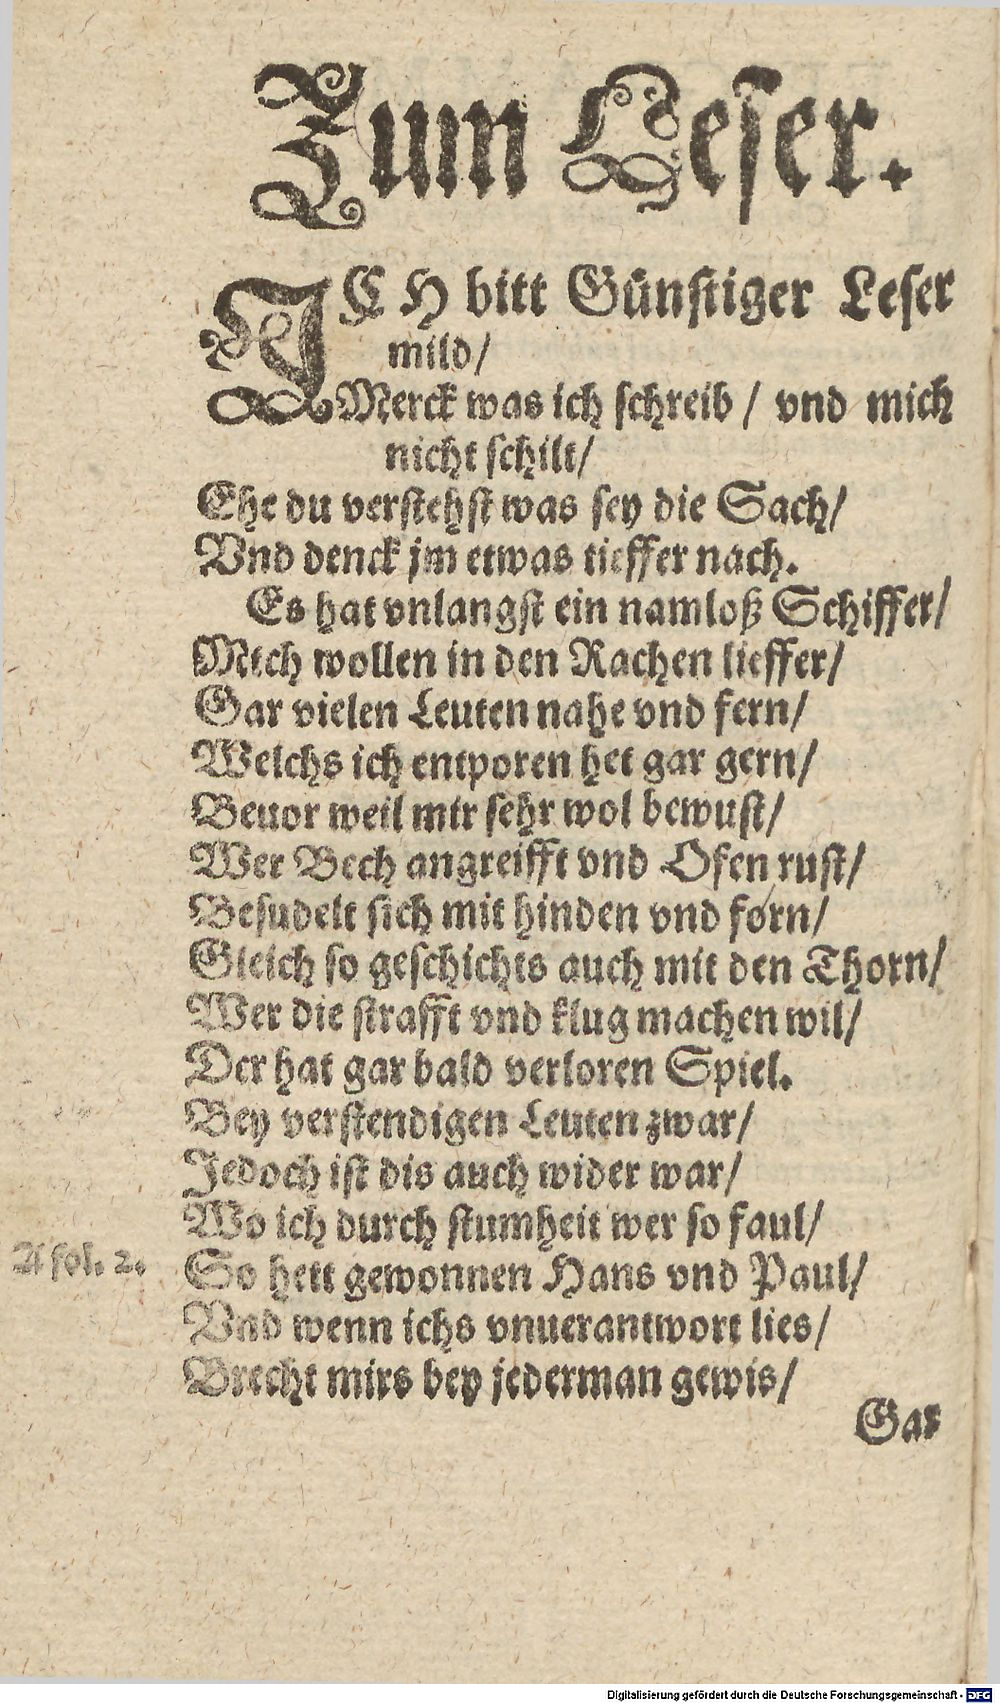 Zum Leser.
ICH bitt Günstiger Leser
mild/
Merck was ich schreib / vnd mich
nicht schilt/
Ehe du verstehst was sey die Sach/
Vnd denck jm etwas tieffer nach.
Es hat vnlangst ein namloß Schiffer/
Mich wollen in den Rachen lieffer/
Gar vielen Leuten nahe vnd fern/
Welchs ich entporen het gar gern/
Beuor weil mir sehr wol bewust/
Wer Bech angreifft vnd Ofen rust/
Besudelt sich mit hinden vnd forn/
Gleich so geschichts auch mit den Thorn/
Wer die strafft vnd klug machen wil/
Der hat gar bald verloren Spiel.
Bey verstendigen Leuten zwar/
Jedoch ist dis auch wider war/
Wo ich durch stumheit wer so faul/
A fol. 2. So hett gewonnen Hans vnd Paul/
Vnd wenn ichs vnuerantwort lies/
Brecht mirs bey jederman gewis/
Gar
Digitalisierung gefördert durch die Deutsche Forschungsgemeinschaft - DFG